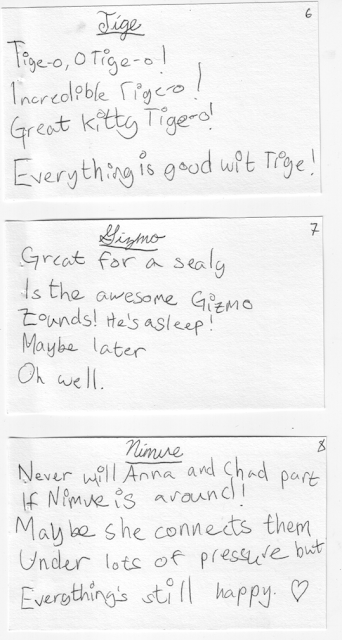 Tige
6
Tige-o, O Tige-o!
Incredible Tige-o!
Great kitty Tige-o!
Everything is good wit Tige!
Gizmo
7
Great for a sealy
Is the awesome Gizmo
Zounds! He's asleep!
Maybe later
Oh well.
Nimue
8
Never will Anna and Chad part
If Nimue is around!
Maybe she connects them
Under lots of pressure but
Everything's still happy. ♡